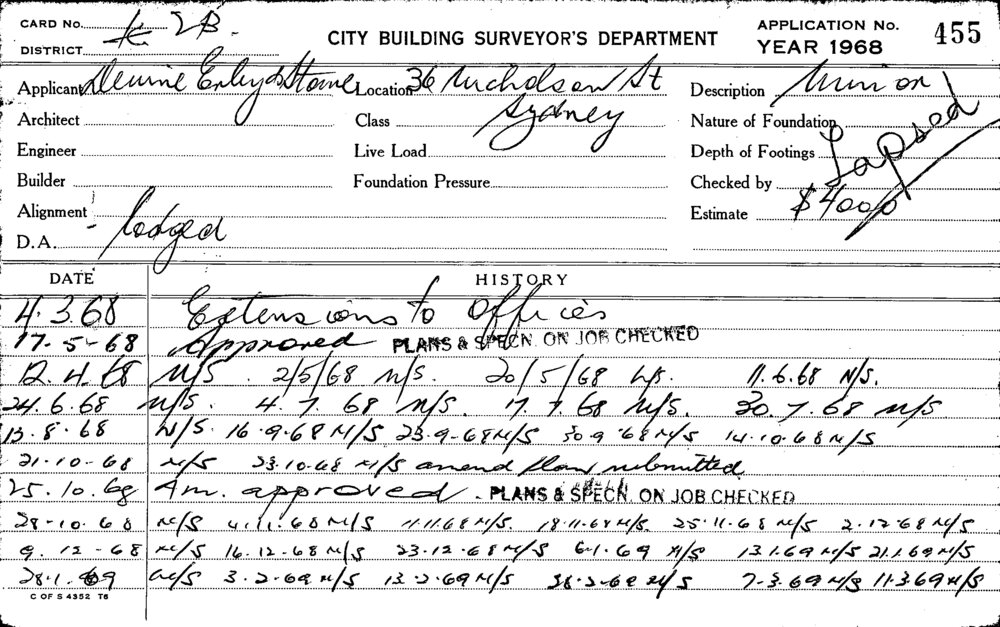 CARD No. K 2B.
CITY BUILDING SURVEYOR'S DEPARTMENT
APPLICATION No. 455
DISTRICT
YEAR 1968
Applicant Location 36 Nicholson St
Sydney
Description Minion
Architect Class Nature of Foundation
Engineer Live Load Depth of Footings
Lapsed
Builder Foundation Pressure Checked by
Alignment Estimate $4000
D.A. lodged
DATE HISTORY
4.3.68 Extensions to Offices
17-5-68 Approved PLANS & SPECN. ON JOB CHECKED
12.4.68 N/S. 2/5/68 N/S. 20/5/68 N/S. 11.6.68 N/S.
24.6.68 N/S. 4.7.68 N/S. 17.7.68 N/S. 30.7.68 N/S
13.8.68 N/S. 16.9.68 N/S 23.9-68 N/S 30.9.68 N/S 14.10.68 N/S
21.10-68 N/S 23.10.68 N/S amend plan submitted
25.10.68 Am. approved. PLANS & SPECN. ON JOB CHECKED
28-10.68 N/S 4.11.68 N/S 11.11.68 N/S. 18.11.68 N/S. 25.11.68 N/S 2.12.68 N/S
9.12-68 N/S 16.12-68 N/S 23.12.68 N/S 6.1.69 N/S 13.1.69 N/S 21.1.69 N/S
28.1.69 N/S 3.2-69 N/S 13.2.69 N/S N/S 7-3.69 N/S 11.3.69 N/S
C OF S 4352 T6